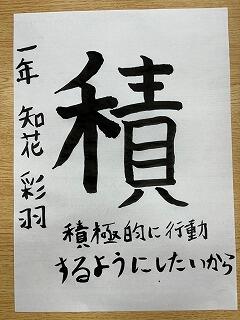 積
積極的に行動
するようにしたいから
一年 知花 彩羽